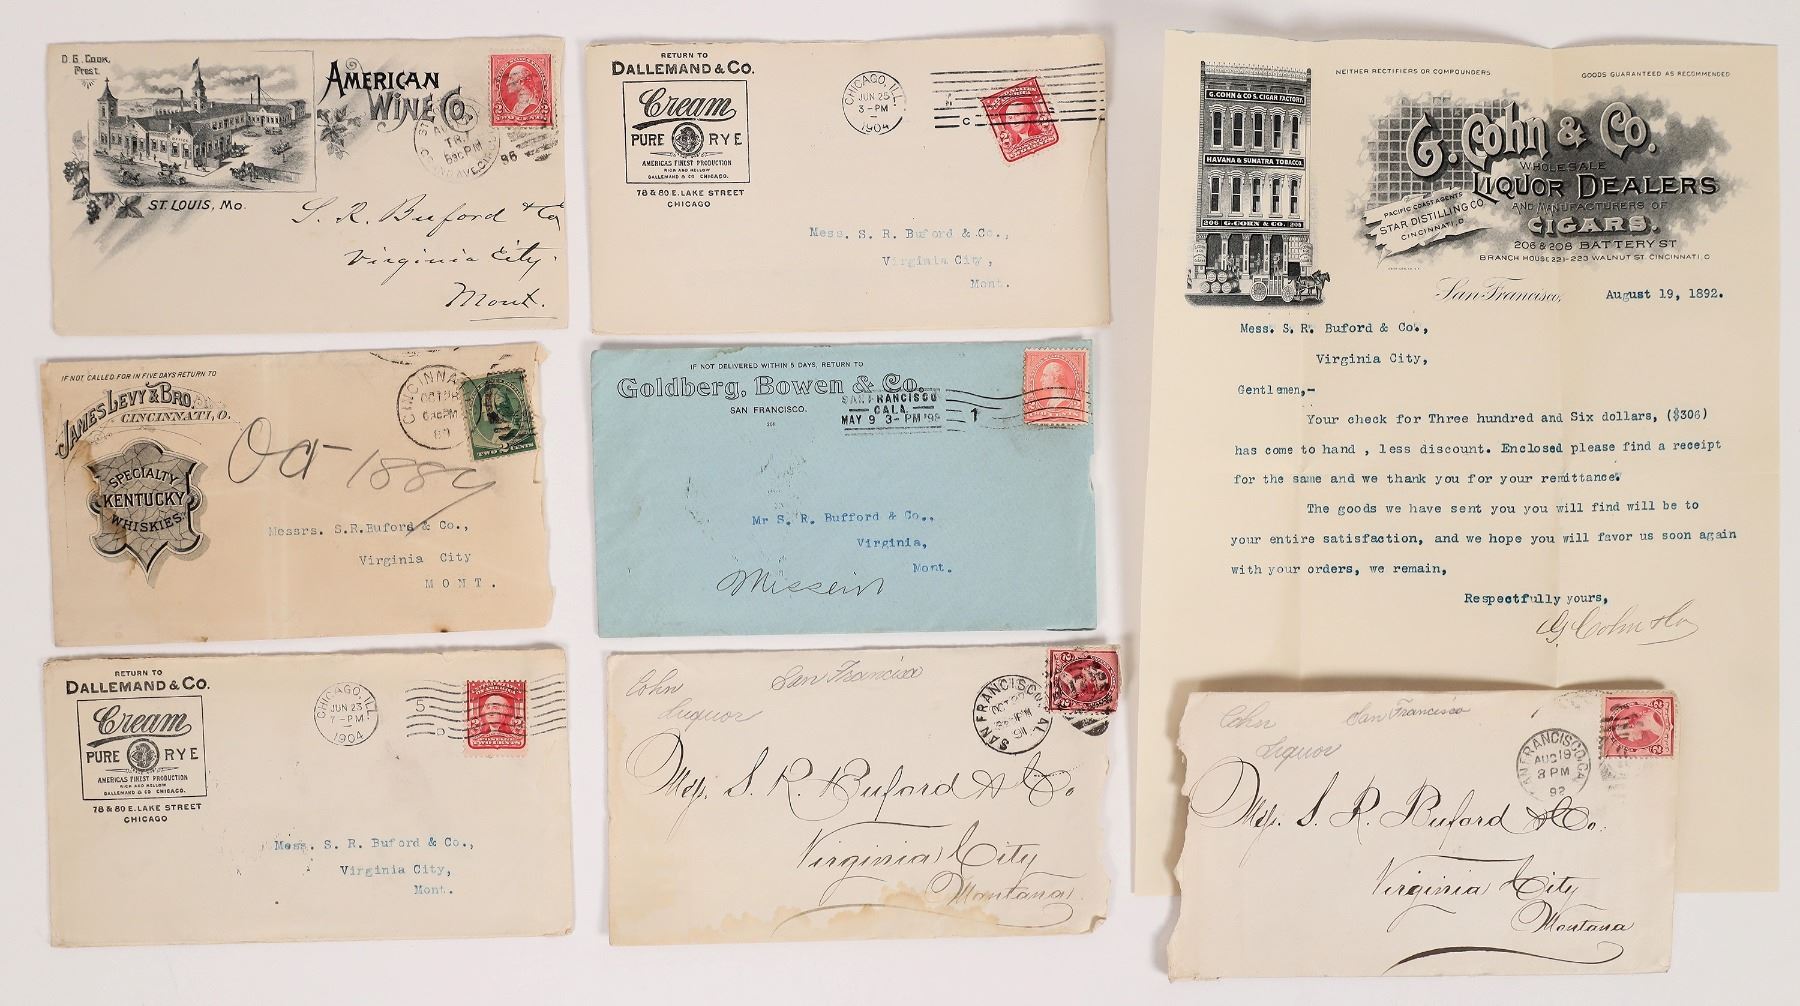 D. G. Cook,
Prest.
AMERICAN
WINE CO.
ST. LOUIS, MO.
96
S. R. Buford & Co
Virginia City.
Mont.
RETURN TO
DALLEMAND & CO.
Cream
PURE RYE
AMERICAS FINEST PRODUCTION
RICH AND MELLOW
DALLEMAND & CO. CHICAGO.
78 & 80 E. LAKE STREET
CHICAGO
CHICAGO, ILL.
JUN 25
3-PM
1904
C
Mess. S. R. Buford & Co.,
Virginia City,
Mont.
IF NOT CALLED FOR IN FIVE DAYS RETURN TO
JAMES LEVY & BRO.
CINCINNATI, O.
SPECIALTY
KENTUCKY
WHISKIES
CINCINNA
OCT 28
Oct 1889
Messrs. S.R.Buford & Co.,
Virginia City
MONT.
IF NOT DELIVERED WITHIN 5 DAYS, RETURN TO
Goldberg, Bowen & Co.
SAN FRANCISCO.
SAN FRANCISCO
CALA.
MAY 9 3-PM '99
1
Mr S. R. Bufford & Co.,
Virginia,
Mont.
RETURN TO
DALLEMAND & CO.
Cream
PURE RYE
AMERICAS FINEST PRODUCTION
RICH AND MELLOW
DALLEMAND & CO CHICAGO.
78 & 80 E. LAKE STREET
CHICAGO
CHICAGO, ILL.
JUN 23
7-PM
1904
5
Mess. S. R. Buford & Co.,
Virginia City,
Mont.
Cohn San Francisco
Liquor
SAN FRANCISCO, CAL.
OCT
91
Mess. S. R. Buford & Co
Virginia City
Montana.
NEITHER RECTIFIERS OR COMPOUNDERS
GOODS GUARANTEED AS RECOMMENDED
G. COHN & CO'S. CIGAR FACTORY.
HAVANA & SUMATRA TOBACCO.
206 G. COHN & CO. 208
G. Cohn & Co.
WHOLESALE
LIQUOR DEALERS
AND MANUFACTURERS OF
CIGARS.
PACIFIC COAST AGENTS
STAR DISTILLING CO.
CINCINNATI, O.
206 & 208 BATTERY ST
BRANCH HOUSE 221-223 WALNUT ST. CINCINNATI, O
San Francisco, August 19, 1892.
Mess. S. R. Buford & Co.,
Virginia City,
Gentlemen,-
Your check for Three hundred and Six dollars, ($306)
has come to hand , less discount. Enclosed please find a receipt
for the same and we thank you for your remittance.
The goods we have sent you you will find will be to
your entire satisfaction, and we hope you will favor us soon again
with your orders, we remain,
Respectfully yours,
G. Cohn & Co
Cohn San Francisco
Liquor
SAN FRANCISCO, CAL
AUG 19
8 PM
92
Mess. S. R. Buford & Co.
Virginia City
Montana